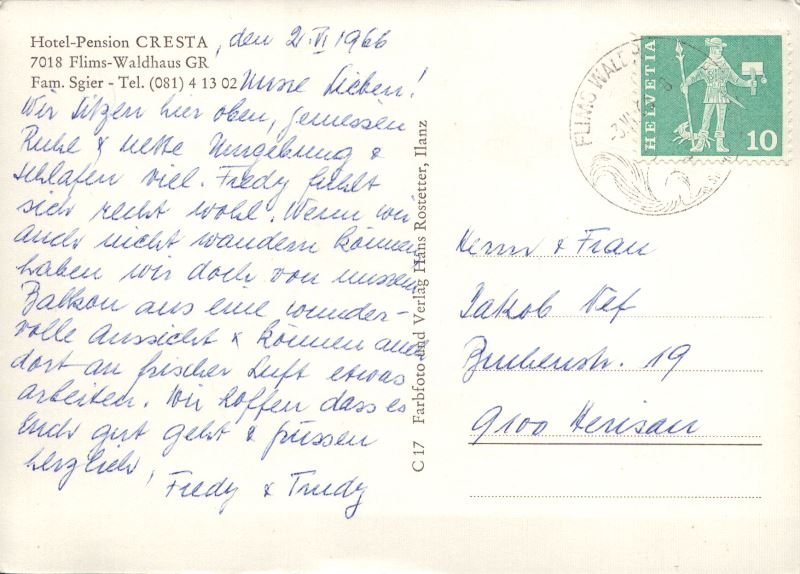 Hotel-Pension CRESTA, den 2. VI 1966
7018 Flims-Waldhaus GR
Fam. Sgier - Tel. (081) 4 13 02
Meine Lieben!
Wir sitzen hier oben, geniessen
Ruhe & nette Umgebung &
schlafen viel. Fredy fühlt
sich recht wohl. Wenn wir
auch nicht wandern können
haben wir doch von unserm
Balkon aus eine wunder-
volle Aussicht & können auch
dort an frischer Luft etwas
arbeiten. Wir hoffen dass es
Euch gut geht & grüssen
herzlich,
Fredy & Trudy
C 17 Farbfoto und Verlag Hans Rostetter, Ilanz
FLIMS WALD
HELVETIA
10
Herrn & Frau
Jakob Nef
Buchenstr. 19
9100 Herisau